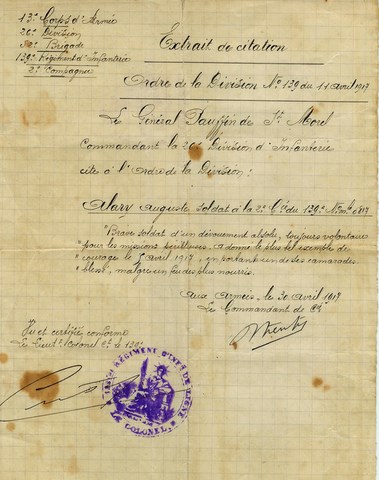 13e Corps d'Armée
26e Division
52e Brigade
139e Régiment d'Infanterie
2e Compagnie
Extrait de citation
Ordre de la Division No 139 du 11 avril 1917
Le Général Pauffin de St Morel
Commandant la 26e Division d'Infanterie
cite à l'Ordre de la Division:
Alary Auguste soldat à la 2e Cie du 139e
"Brave soldat d'un dévouement absolu, toujours volontaire
pour les missions périlleuses. a donné le plus bel exemple de
courage le avril 1917, en portant un de ses camarades
blessé, malgré un feu des plus nourris.
Aux Armées, le 30 avril 1917
Le Commandant de Cie
Vu et certifié conforme
Le Lieut. Colonel Ct le 139e
139e RÉGIMENT D'INFie DE LIGNE
LE COLONEL